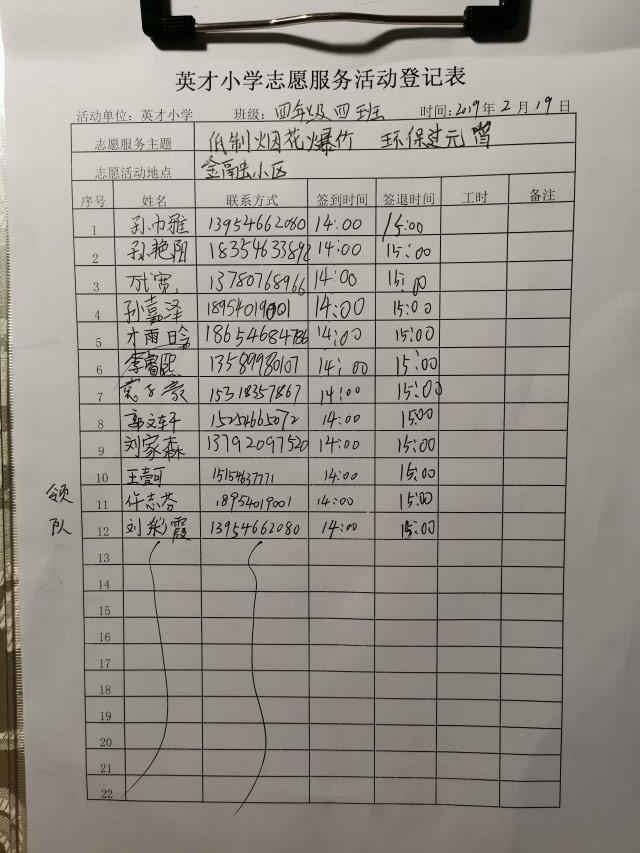 英才小学志愿服务活动登记表
活动单位：英才小学 班级：四年级四班 时间：2019年2月19日
志愿服务主题 低制烟花爆竹 环保过元宵
志愿活动地点 金融小区
序号 姓名 联系方式 签到时间 签退时间 工时 备注
1 孙巾雅 13954662080 14:00 15:00
2 孙艳阳 1835463389 14:00 15:00
3 13780768966 14:00 15:00
4 孙嘉泽 18954019001 14:00 15:00
5 才雨晗 18654684786 14:00 15:00
6 李睿熙 13589980107 14:00 15:00
7 15318357867 14:00 15:00
8 郭文轩 15254665072 14:00 15:00
9 刘家森 13792097520 14:00 15:00
10 王壹可 15154637771 14:00 15:00
领 11 许志芬 18954019001 14:00 15:00
队 12 刘彩霞 13954662080 14:00 15:00
13
14
15
16
17
18
19
20
21
22